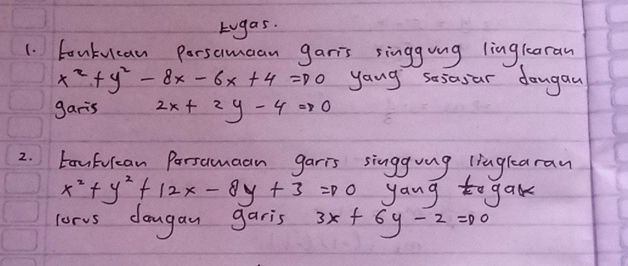 tugas.
1. tentukan persamaan garis singgung lingkaran
x² + y² - 8x - 6x + 4 = 0 yang sesajar dengan
garis 2x + 2y - 4 = 0
2. tentukan persamaan garis singgung lingkaran
x² + y² + 12x - 8y + 3 = 0 yang tegak
lurus dengan garis 3x + 6y - 2 = 0